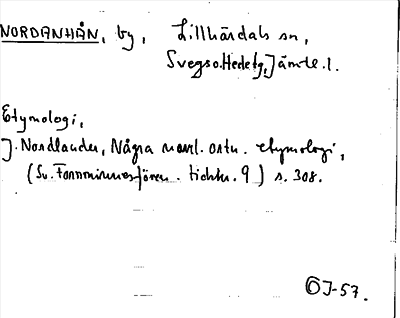 NORDANHÅN, by, Lillhärdals sn,
Svegs o. Hedetg, Jämtl. l.
Etymologi,
J. Nordlander, Några norrl. ortn. etymologi,
(Sv. Fornminnesfören. tidskr. 9) s. 308.
ÖJ-57.